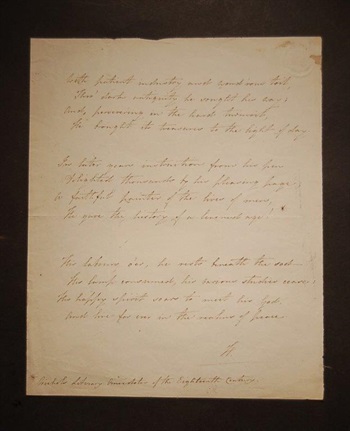 With patient industry and wondrous toil,
Thro' dark antiquity he sought his way;
And, persevering in the hard turmoil,
He brought its treasures to the light of day
In later years instruction from his pen
Delighted thousands by his pleasing page;
A faithful painter of the lives of men,
He gave the history of a learned age!
His labours o'er, he rests beneath the sod
His lamp consumed, his various studies cease;
His happy spirit soars to meet his God,
And live for ever in the realms of peace.
H.
Nichols Literary Anecdotes of the Eighteenth Century